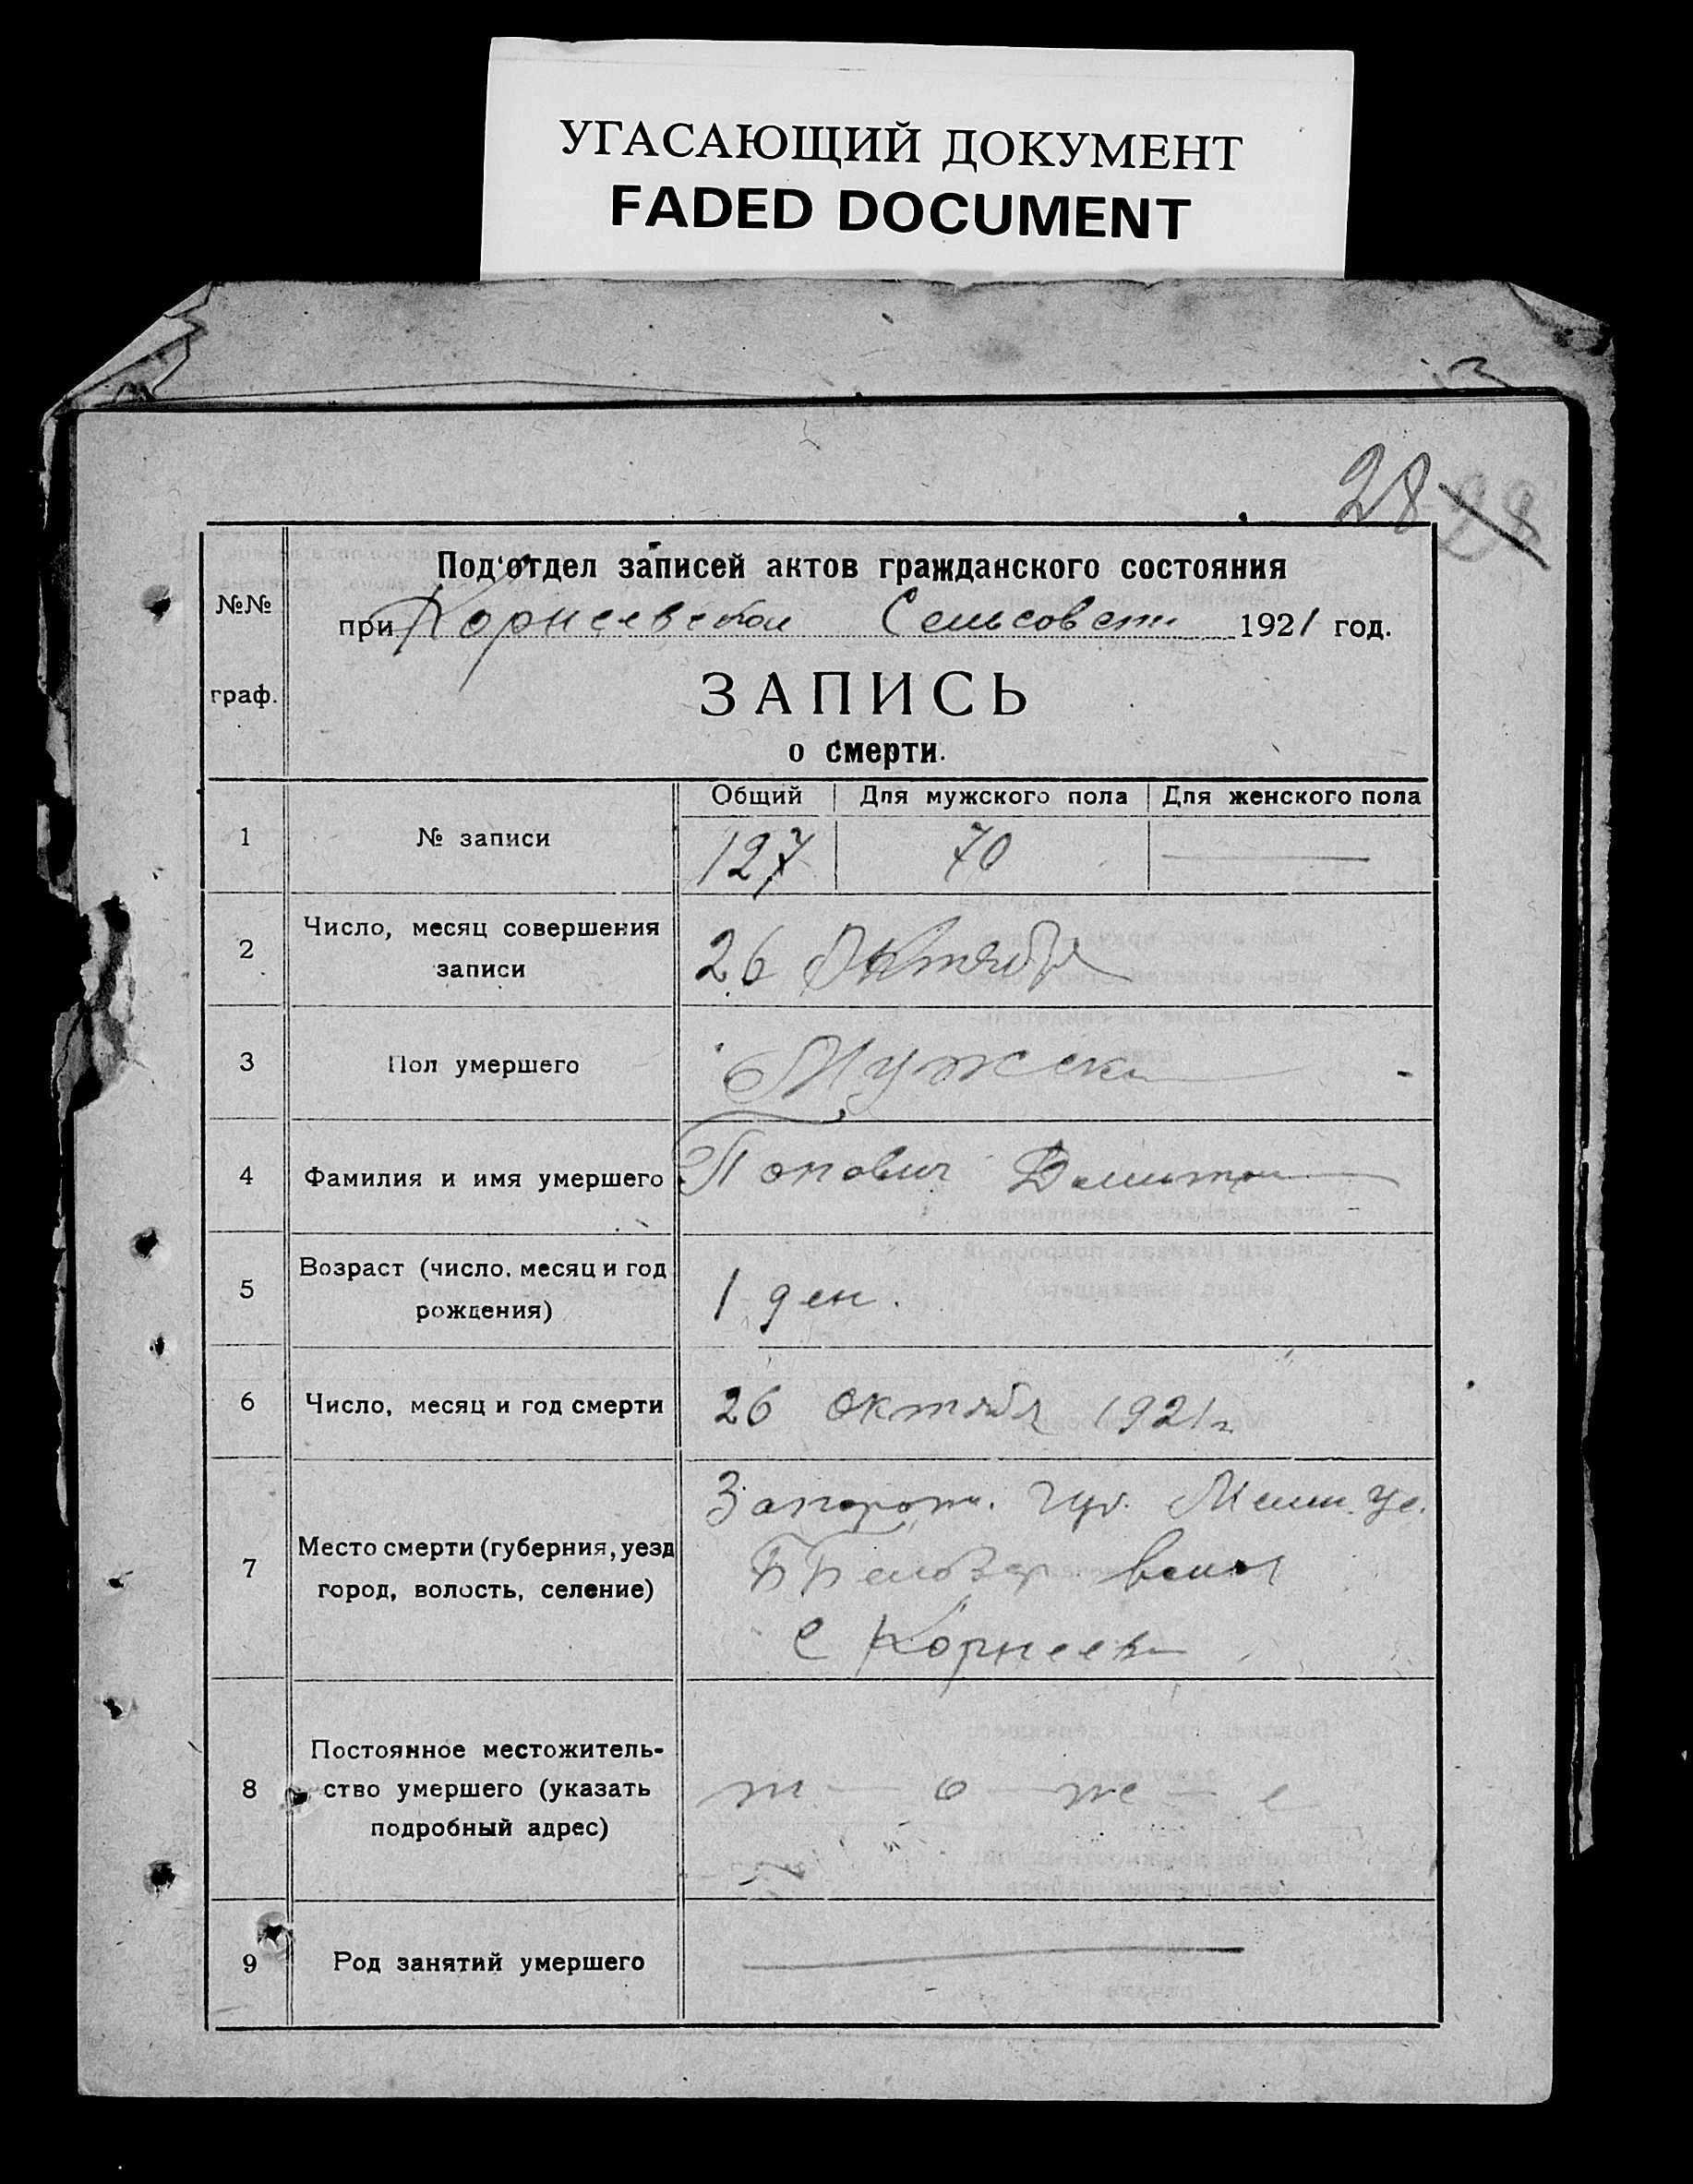 УГАСАЮЩИЙ ДОКУМЕНТ
FADED DOCUMENT
28 29
№№ граф.
Под'отдел записей актов гражданского состояния
при Корнеевском Сельсовети 1921 год.
ЗАПИСЬ
о смерти.
Общий Для мужского пола Для женского пола
1 № записи 127 70
2 Число, месяц совершения
записи
26 Октября
3 Пол умершего Мужски
4 Фамилия и имя умершего Попович
5 Возраст (число, месяц и год
рождения)
1 ден.
6 Число, месяц и год смерти 26 октября 1921 г
7 Место смерти (губерния, уезд
город, волость, селение)
Запорож. губ. Мелит. Уе.
волос
с Корнеевка
8 Постоянное местожитель-
ство умершего (указать
подробный адрес)
т — о — же — е
9 Род занятий умершего